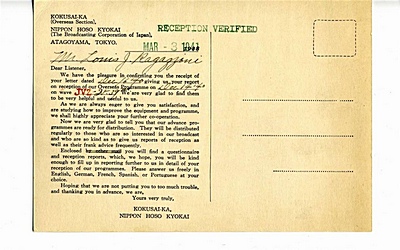 KOKUSAI-KA
(Overseas Section),
NIPPON HOSO KYOKAI
(The Broadcasting Corporation of Japan),
ATAGOYAMA, TOKYO.
RECEPTION VERIFIED
MAR - 3 1941
Mr. Louis J.
Dear Listener,
We have the pleasure in confirming you the receipt of
your letter dated Dec 16 40 giving us your report
on reception of our Overseas Programme on Dec 14 40
on wave We are very glad to find them
to be very helpful and useful to us.
As we are always eager to give you satisfaction, and
are studying how to improve the equipment and programme,
we shall highly appreciate your further co-operation.
Now we are very glad to tell you that our advance pro-
grammes are ready for distribution. They will be distributed
regularly to those who are so interested in our broadcast
and who are so kind as to give us reports of reception as
well as their frank advice frequently.
Enclosed by other mail you will find a questionnaire
and reception reports, which, we hope, you will be kind
enough to fill up in reporting further to us in detail of your
reception of our programmes. Please answer us freely in
English, German, French, Spanish, or Portuguese at your
choice.
Hoping that we are not putting you to too much trouble,
and thanking you in advance, we are,
Yours very truly,
KOKUSAI-KA,
NIPPON HOSO KYOKAI